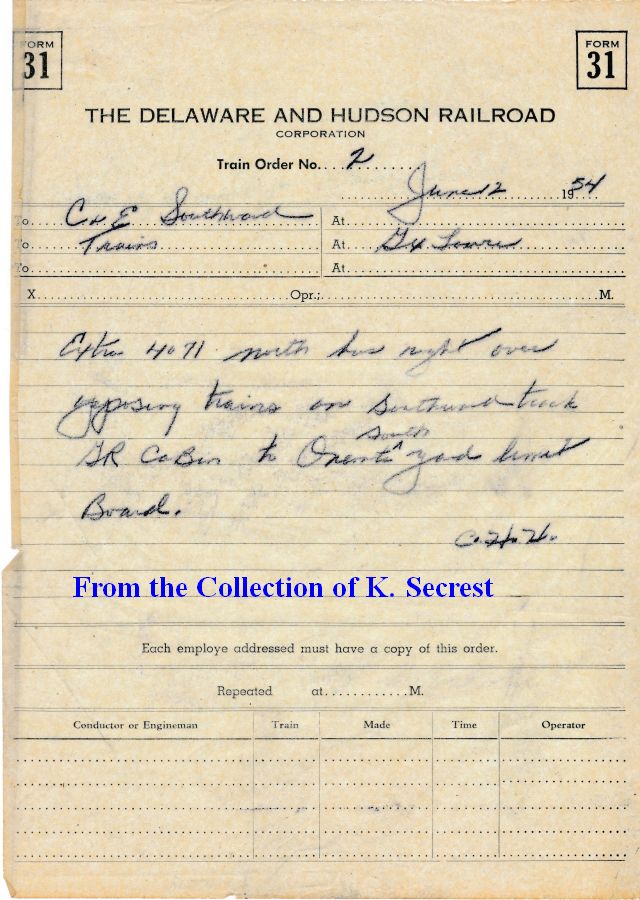 FORM 31
FORM 31
THE DELAWARE AND HUDSON RAILROAD
CORPORATION
Train Order No. 2
June 12 1954
To C & E Southward At
To Trains At Tower
To At
X Opr.; M.
Extra 4071 north has right over
opposing trains on Southward track
GR CaBin to south
yard limit
Board.
C.H.H.
From the Collection of K. Secrest
Each employe addressed must have a copy of this order.
Repeated at M.
Conductor or Engineman Train Made Time Operator